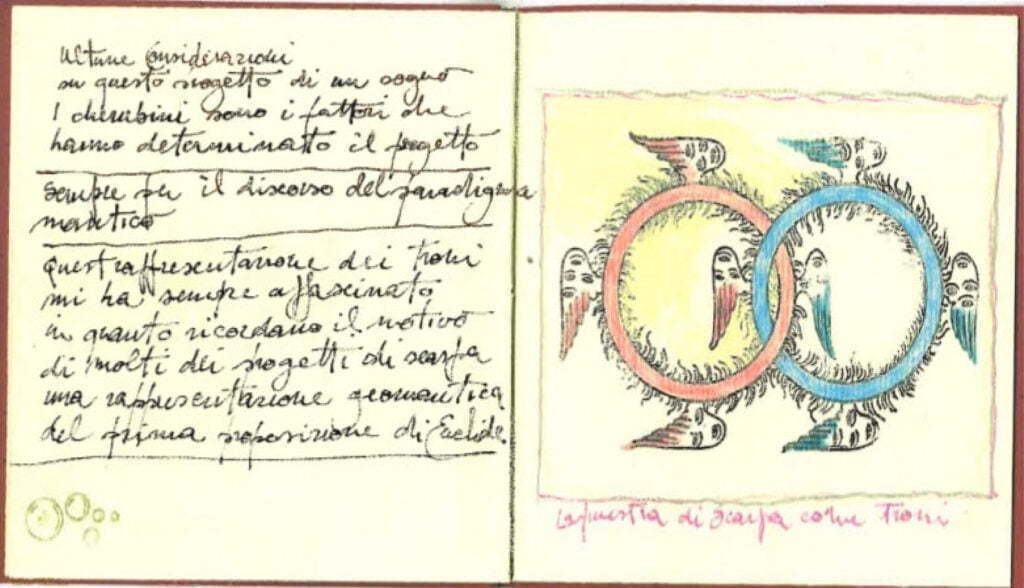 Ultime Considerazioni
su questo progetto di un sogno
I cherubini sono i fattori che
hanno determinatto il progetto
sempre per il discorso del paradigma
mantico
Quest rappresentazione dei troni
mi ha sempre affascinato
in quanto ricordano il motivo
di molti dei progetti di scarpa
una rappresentazione geomantica
del prima proposizione di Euclide.
La finestra di Scarpa come troni